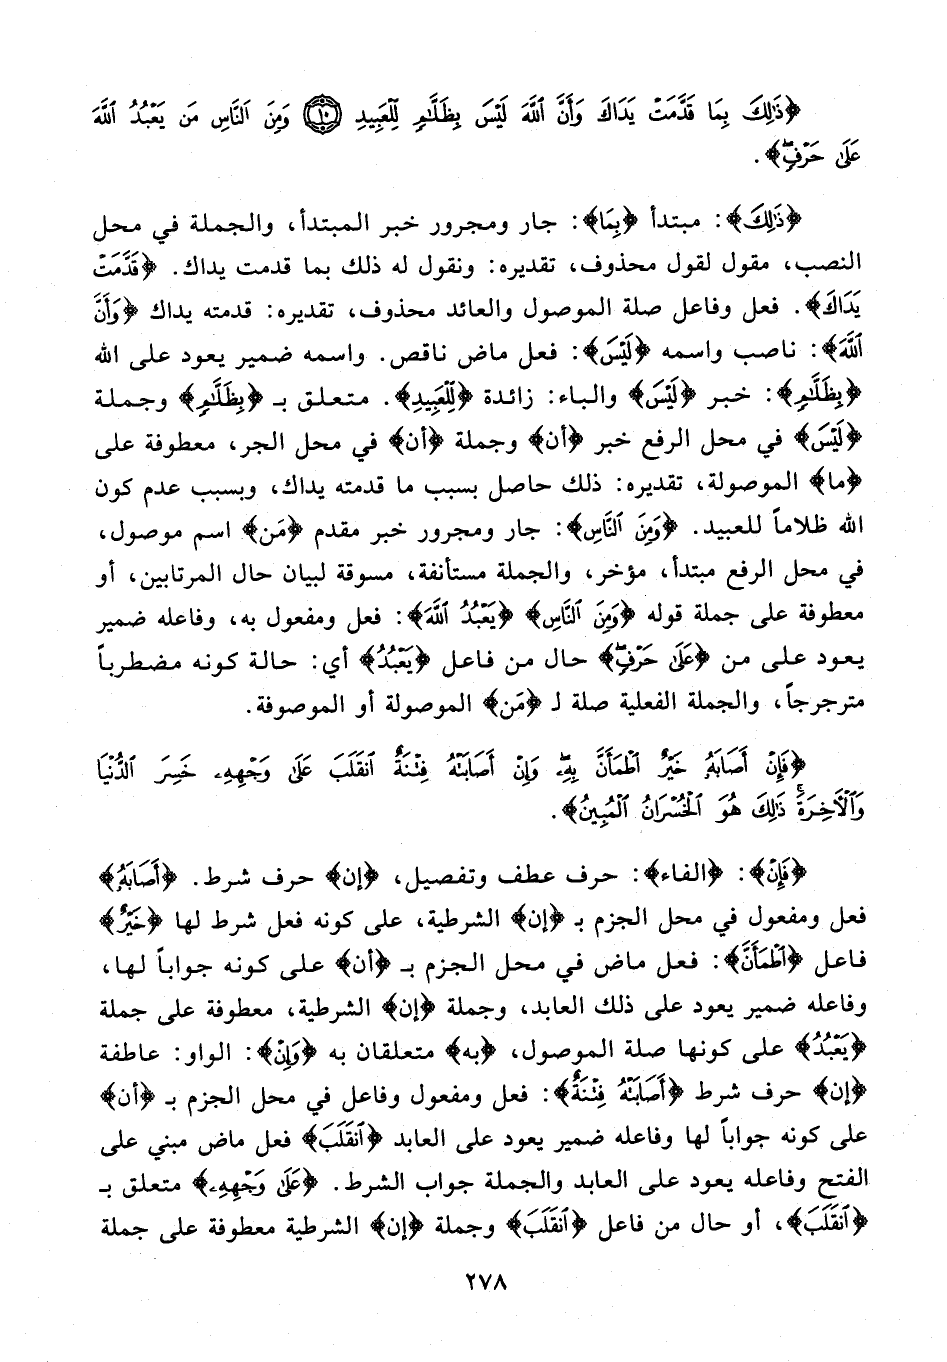 ﴿ذَٰلِكَ بِمَا قَدَّمَتْ يَدَاكَ وَأَنَّ ٱللَّهَ لَيْسَ بِظَلَّٰمٍ لِّلْعَبِيدِ ١٠ وَمِنَ ٱلنَّاسِ مَن يَعْبُدُ ٱللَّهَ
عَلَىٰ حَرْفٍ ۖ﴾.
﴿ذَٰلِكَ﴾: مبتدأ ﴿بِمَا﴾: جار ومجرور خبر المبتدأ، والجملة في محل
النصب، مقول لقول محذوف، تقديره: ونقول له ذلك بما قدمت يداك. ﴿قَدَّمَتْ
يَدَاكَ﴾. فعل وفاعل صلة الموصول والعائد محذوف، تقديره: قدمته يداك ﴿وَأَنَّ
ٱللَّهَ﴾: ناصب واسمه ﴿لَيْسَ﴾: فعل ماض ناقص. واسمه ضمير يعود على الله
﴿بِظَلَّٰمٍ﴾: خبر ﴿لَيْسَ﴾ والباء: زائدة ﴿لِّلْعَبِيدِ﴾. متعلق بـ ﴿بِظَلَّٰمٍ﴾ وجملة
﴿لَيْسَ﴾ في محل الرفع خبر ﴿أن﴾ وجملة ﴿أن﴾ في محل الجر، معطوفة على
﴿ما﴾ الموصولة، تقديره: ذلك حاصل بسبب ما قدمته يداك، وبسبب عدم كون
الله ظلاماً للعبيد. ﴿وَمِنَ ٱلنَّاسِ﴾: جار ومجرور خبر مقدم ﴿مَن﴾ اسم موصول،
في محل الرفع مبتدأ، مؤخر، والجملة مستأنفة، مسوقة لبيان حال المرتابين، أو
معطوفة على جملة قوله ﴿وَمِنَ ٱلنَّاسِ﴾ ﴿يَعْبُدُ ٱللَّهَ﴾: فعل ومفعول به، وفاعله ضمير
يعود على من ﴿عَلَىٰ حَرْفٍ ۖ﴾ حال من فاعل ﴿يَعْبُدُ﴾ أي: حالة كونه مضطرباً
مترجرجاً، والجملة الفعلية صلة لـ ﴿مَن﴾ الموصولة أو الموصوفة.
﴿فَإِنْ أَصَابَهُۥ خَيْرٌ ٱطْمَأَنَّ بِهِۦ ۖ وَإِنْ أَصَابَتْهُ فِتْنَةٌ ٱنقَلَبَ عَلَىٰ وَجْهِهِۦ خَسِرَ ٱلدُّنْيَا
وَٱلْأَخِرَةَ ۚ ذَٰلِكَ هُوَ ٱلْخُسْرَانُ ٱلْمُبِينُ﴾.
﴿فَإِنْ﴾: ﴿الفاء﴾: حرف عطف وتفصيل، ﴿إن﴾ حرف شرط. ﴿أَصَابَهُۥ﴾
فعل ومفعول في محل الجزم بـ ﴿إن﴾ الشرطية، على كونه فعل شرط لها ﴿خَيْرٌ﴾
فاعل ﴿ٱطْمَأَنَّ﴾: فعل ماض في محل الجزم بـ ﴿أن﴾ على كونه جواباً لها،
وفاعله ضمير يعود على ذلك العابد، وجملة ﴿إن﴾ الشرطية، معطوفة على جملة
﴿يَعْبُدُ﴾ على كونها صلة الموصول، ﴿به﴾ متعلقان به ﴿وَإِنْ﴾: الواو: عاطفة
﴿إن﴾ حرف شرط ﴿أَصَابَتْهُ فِتْنَةٌ﴾: فعل ومفعول وفاعل في محل الجزم بـ ﴿أن﴾
على كونه جواباً لها وفاعله ضمير يعود على العابد ﴿ٱنقَلَبَ﴾ فعل ماض مبني على
الفتح وفاعله يعود على العابد والجملة جواب الشرط. ﴿عَلَىٰ وَجْهِهِۦ﴾ متعلق بـ
﴿ٱنقَلَبَ﴾، أو حال من فاعل ﴿ٱنقَلَبَ﴾ وجملة ﴿إن﴾ الشرطية معطوفة على جملة
٢٧٨